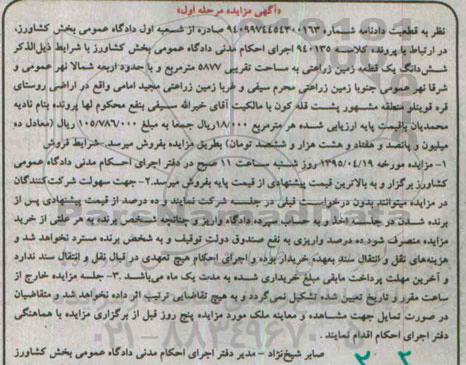 «آگهی مزایده مرحله اول»
نظر به قطعیت دادنامه شماره ۹۴۰۹۹۷۴۴۵۴۳۰۰۱۶۳ صادره از شعبه اول دادگاه عمومی بخش کشاورز،
در ارتباط با پرونده کلاسه ۹۴۰۱۳۵ اجرای احکام مدنی دادگاه عمومی بخش کشاورز با شرایط ذیل‌الذکر
شش‌دانگ یک قطعه زمین زراعتی به مساحت تقریبی ۵۸۷۷ مترمربع و با حدود اربعه شمالا نهر عمومی و
شرقا نهر عمومی جنوبا زمین زراعتی محرم سیفی و غربا زمین زراعتی مجید امامی واقع در اراضی روستای
قره قویونلو منطقه مشهور پشت قله کون با مالکیت آقای خیرالله سیفی بنفع محکوم لها پرونده بنام نادیه
محمدیان باقیمت پایه ارزیابی شده هر مترمربع ۱۸/۰۰۰ریال جمعا به مبلغ ۱۰۵/۷۸۶/۰۰۰ ریال (معادل ده
میلیون و پانصد و هفتاد و هشت هزار و ششصد تومان) بطریق مزایده بفروش میرسد. شرایط فروش
۱-مزایده مورخه ۱۳۹۵/۰۴/۱۹ روز شنبه ساعت ۱۱ صبح در دفتر اجرای احکام مدنی دادگاه عمومی
کشاورز برگزار و به بالاترین قیمت پیشنهادی از قیمت پایه بفروش میرسد.۲- جهت سهولت شرکت‌کنندگان
در مزایده میتوانند بدون درخواست قبلی در جلسه شرکت نمایند و ده درصد از قیمت پیشنهادی پس از
برنده شدن در جلسه اخذ و به حساب سپرده دادگاه واریز و چنانچه شخص برنده به هر علتی از خرید
مزایده منصرف شود ده درصد واریزی به نفع صندوق دولت توقیف و به شخص برنده مسترد نخواهد شد و
هزینه‌های نقل و انتقال سند بعهده خریدار بوده و اجرای احکام هیچ تعهدی در قبال نقل و انتقال سند ندارد
و آخرین مهلت پرداخت مابقی مبلغ خریداری شده به مدت یک ماه می‌باشد. ۳- جلسه مزایده خارج از
ساعت مقرر و تاریخ تعیین شده تشکیل نمی‌گردد و به هیچ تقاضایی ترتیب اثر داده نخواهد شد و متقاضیان
در صورت تمایل جهت مشاهده و معاینه ملک مورد مزایده پنج روز قبل از برگزاری مزایده با هماهنگی
دفتر اجرای احکام اقدام نمایند.
صابر شیخ‌نژاد - مدیر دفتر اجرای احکام مدنی دادگاه عمومی بخش کشاورز
۰۲۱-۸۸۳۴۹۶۷۰